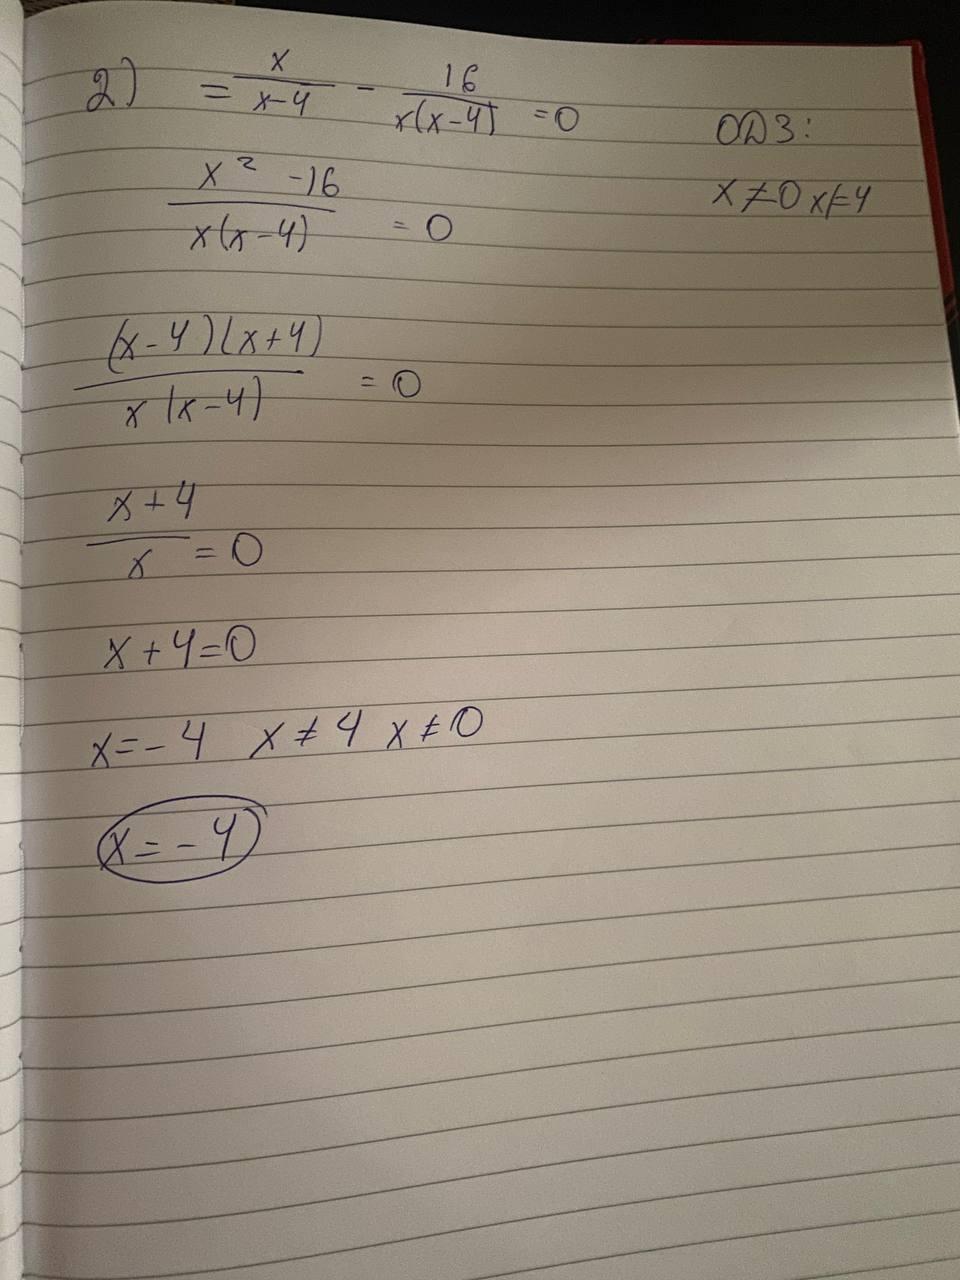 2) = x/(x-4) - 16/(x(x-4)) = 0
ОДЗ:
x≠0 x≠4
(x² -16)/(x(x-4)) = 0
((x-4)(x+4))/(x(x-4)) = 0
(x+4)/x = 0
x+4=0
x=-4 x≠4 x≠0
x=-4